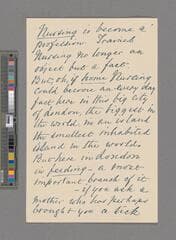 Nursing is become a
profession. Trained
Nursing no longer an
object but a fact.
But, oh, if home Nursing
could become an every day
fact here in this big city
of London, the biggest in
the world, in an island
the smallest inhabited
island in the world.
But here in London
in feeding - a most
important branch of it
- if you ask a
mother who has perhaps
brought you a sick